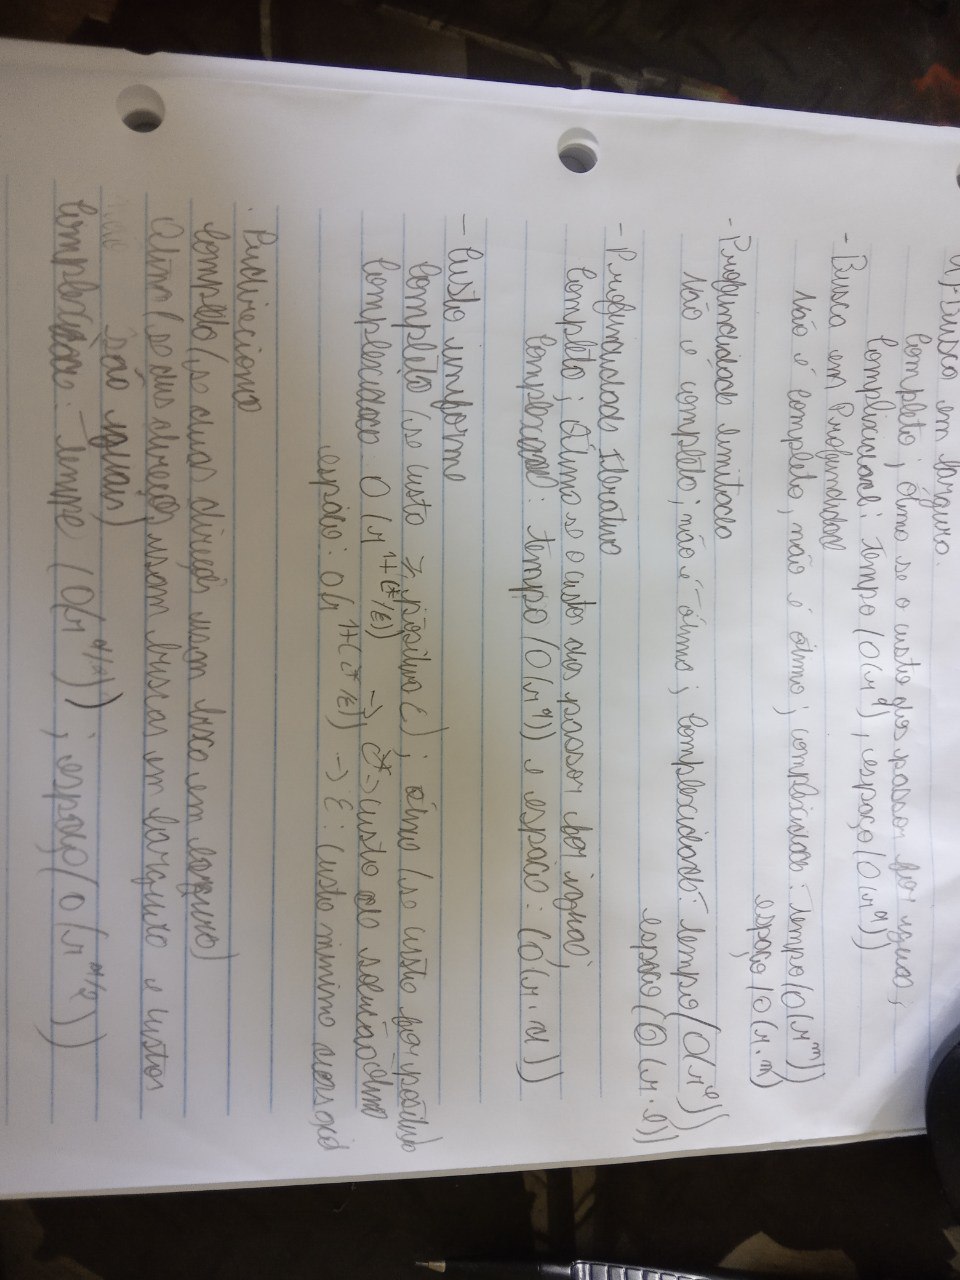 4) - Busca em largura.
Completo; ótimo se o custo dos passos for iguais;
Complexidade: tempo (O(r^d), espaço (O(r^d))
- Busca em Profundidade
Não é completo, não é ótimo; complexidade: tempo (O(r^m))
espaço (O(r.m)
- Profundidade limitada
Não é completo; não é ótimo; Complexidade: tempo (O(r^l))
espaço (O(r.l))
- Profundidade Iterativo
Completo; Ótimo se o custo dos passos for iguais;
Complexidade: tempo (O(r^d)) e espaço: (O(r.d))
- Custo uniforme
Completo (se custo ≥ positivo ε); ótimo (se custo for positivo
Complexidade: O(r^1+(C*/ε)) -> C* -> custo da solução ótima
espaço: O(r^1+(C*/ε)) -> ε: Custo mínimo
. Bidireciona
Completo (se duas direções usam busca em largura)
Ótima (se duas direções usam buscas em largura e custos
são iguais)
Complexidade: Tempo (O(r^d/2)) ; espaço (O(r^d/2))